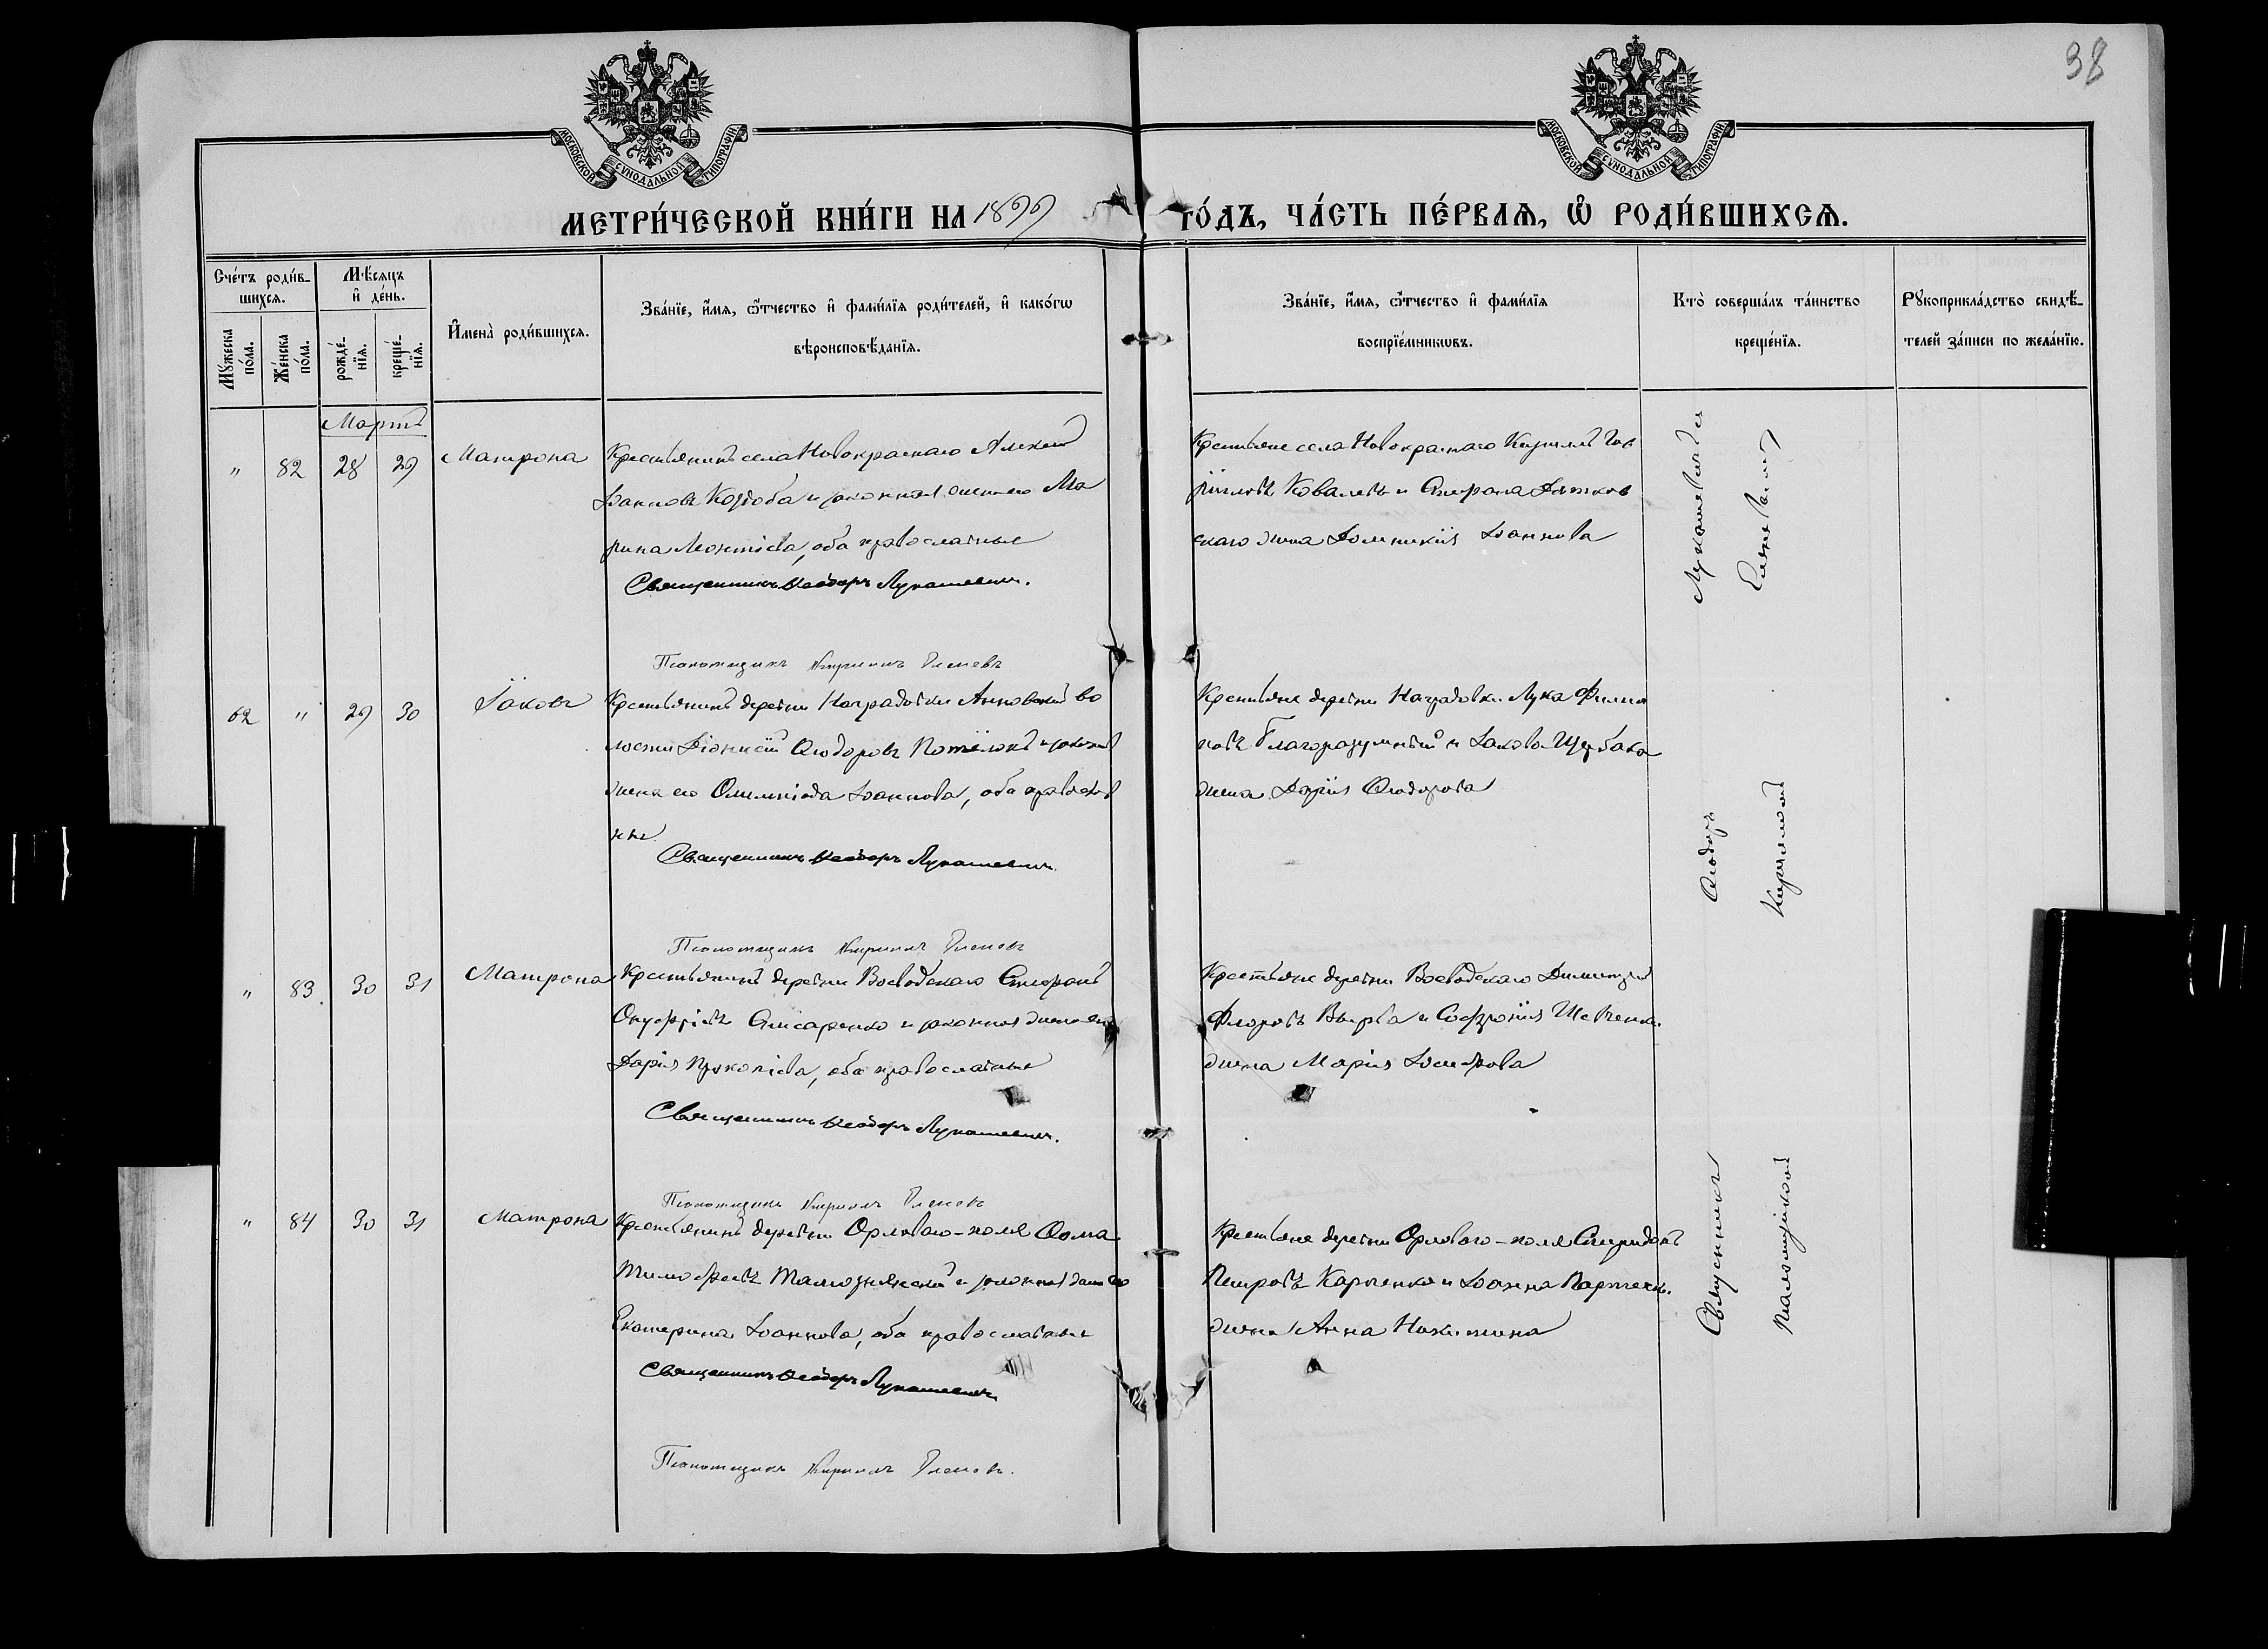 38
МОСКОВСКОЙ СѴНОДАЛЬНОЙ ТИПОГРАФІИ
МОСКОВСКОЙ СѴНОДАЛЬНОЙ ТИПОГРАФІИ
МЕТРИ́ЧЕСКОЙ КНИ́ГИ НА 1899 ГО́ДЪ, ЧА́СТЬ ПЕ́РВАѦ, Ѡ РОДИ́ВШИХСѦ.
Сче́тъ роди́в-
шихсѧ.
Мꙋ́жеска по́ла.
Же́нска по́ла.
Мѣ́сѧцъ
и҆ де́нь.
рожде́-
нїѧ.
креще́-
нїѧ.
И҆мена̀ роди́вшихсѧ.
Зва́нїе, и҆́мѧ, ѻ҆́тчество и҆ фами́лїѧ роди́телей, и҆ како́гѡ
вѣроисповѣ́данїѧ.
Зва́нїе, и҆́мѧ, ѻ҆́тчество и҆ фами́лїѧ
воспрїе́мникѡвъ.
Кто̀ соверша́лъ та́инство
креще́нїѧ.
Рꙋкоприкла́дство свидѣ́-
телей за́писи по жела́нїю.
Мартъ
" 82 28 29 Матрона
Крестьянинъ села Новокраснаго Алексѣй
Іоанновъ Козюба и законная жена его Ма
рина Леонтіева, оба православные
Священникъ Ѳеодоръ Лукашевичъ.
Псаломщикъ Кириллъ Еленевъ
Крестьяне села Новокраснаго Кириллъ Гав
ріиловъ Ковалевъ и Стефана Дятков
скаго жена Домникія Іоаннова
62 " 29 30 Іаковъ
Крестьянинъ деревни Наградовки Анновской во
лости Діонисій Ѳеодоровъ Потёлокъ и законная
жена его Олимпіада Іоаннова, оба православ
ные
Священникъ Ѳеодоръ Лукашевичъ.
Псаломщикъ Кириллъ Еленевъ
Крестьяне деревни Наградовки Лука Филип
повъ Благоразумный и Іакова Щербака
жена Дарія Ѳеодорова
" 83 30 31 Матрона
Крестьянинъ деревни Воеводскаго Стефанъ
Онуфріевъ Слисаренко и законная жена его
Дарія Прокопіева, оба православные
Священникъ Ѳеодоръ Лукашевичъ.
Псаломщикъ Кириллъ Еленевъ
Крестьяне деревни Воеводскаго Димитрій
Флоровъ Верба и Софронія Шевченка
жена Марія
" 84 30 31 Матрона
Крестьянинъ деревни Орлового-поля Ѳома
Тимоѳеевъ и законная жена его
Екатерина Іоаннова, оба православные
Священникъ Ѳеодоръ Лукашевичъ
Псаломщикъ Кириллъ Еленевъ.
Крестьяне деревни Орлового-поля Спиридонъ
Петровъ Карпенко и Іоанна
жена Анна Никитина
Священникъ Ѳеодоръ Лукашевичъ и
Псаломщикъ Кириллъ Еленевъ